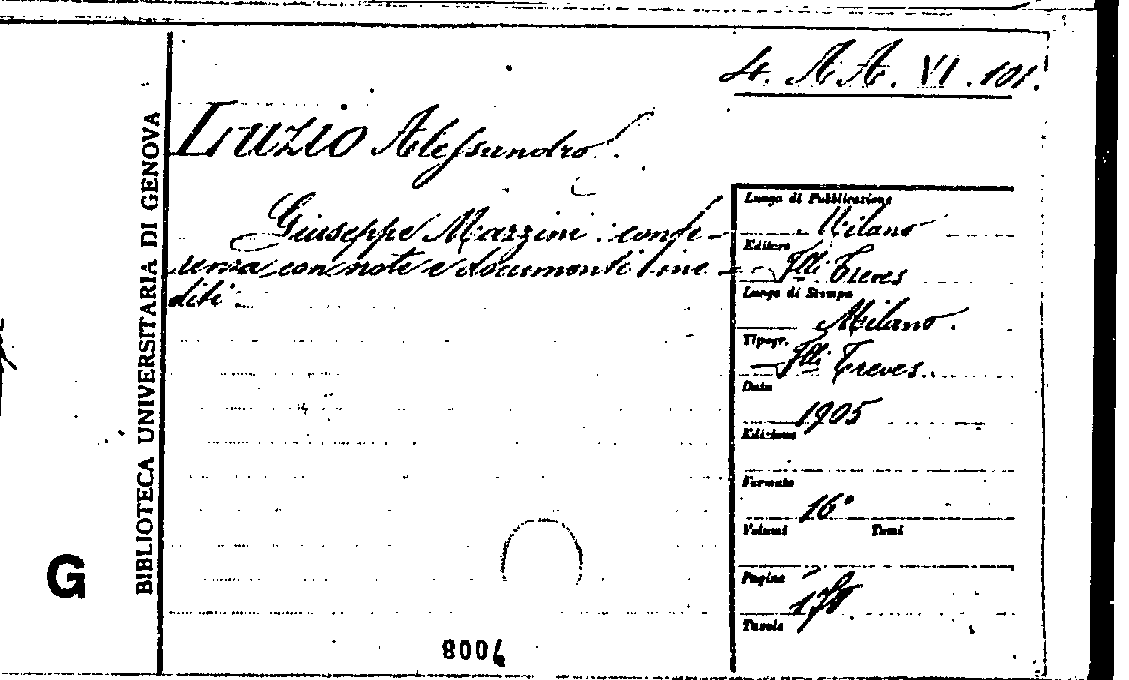 4. A A. VI. 101.
Luzio Alessandro.
Giuseppe Mazzini: confe-
renza con note e documenti ine-
diti
Luogo di Pubblicazione
Milano
Editore
Flli Treves
Luogo di Stampa
Milano.
Tipogr.
Flli Treves.
Data
1905
Edizione
Formato
16°
Volumi Tomi
Pagine
Tavole
BIBLIOTECA UNIVERSITARIA DI GENOVA
G
7008